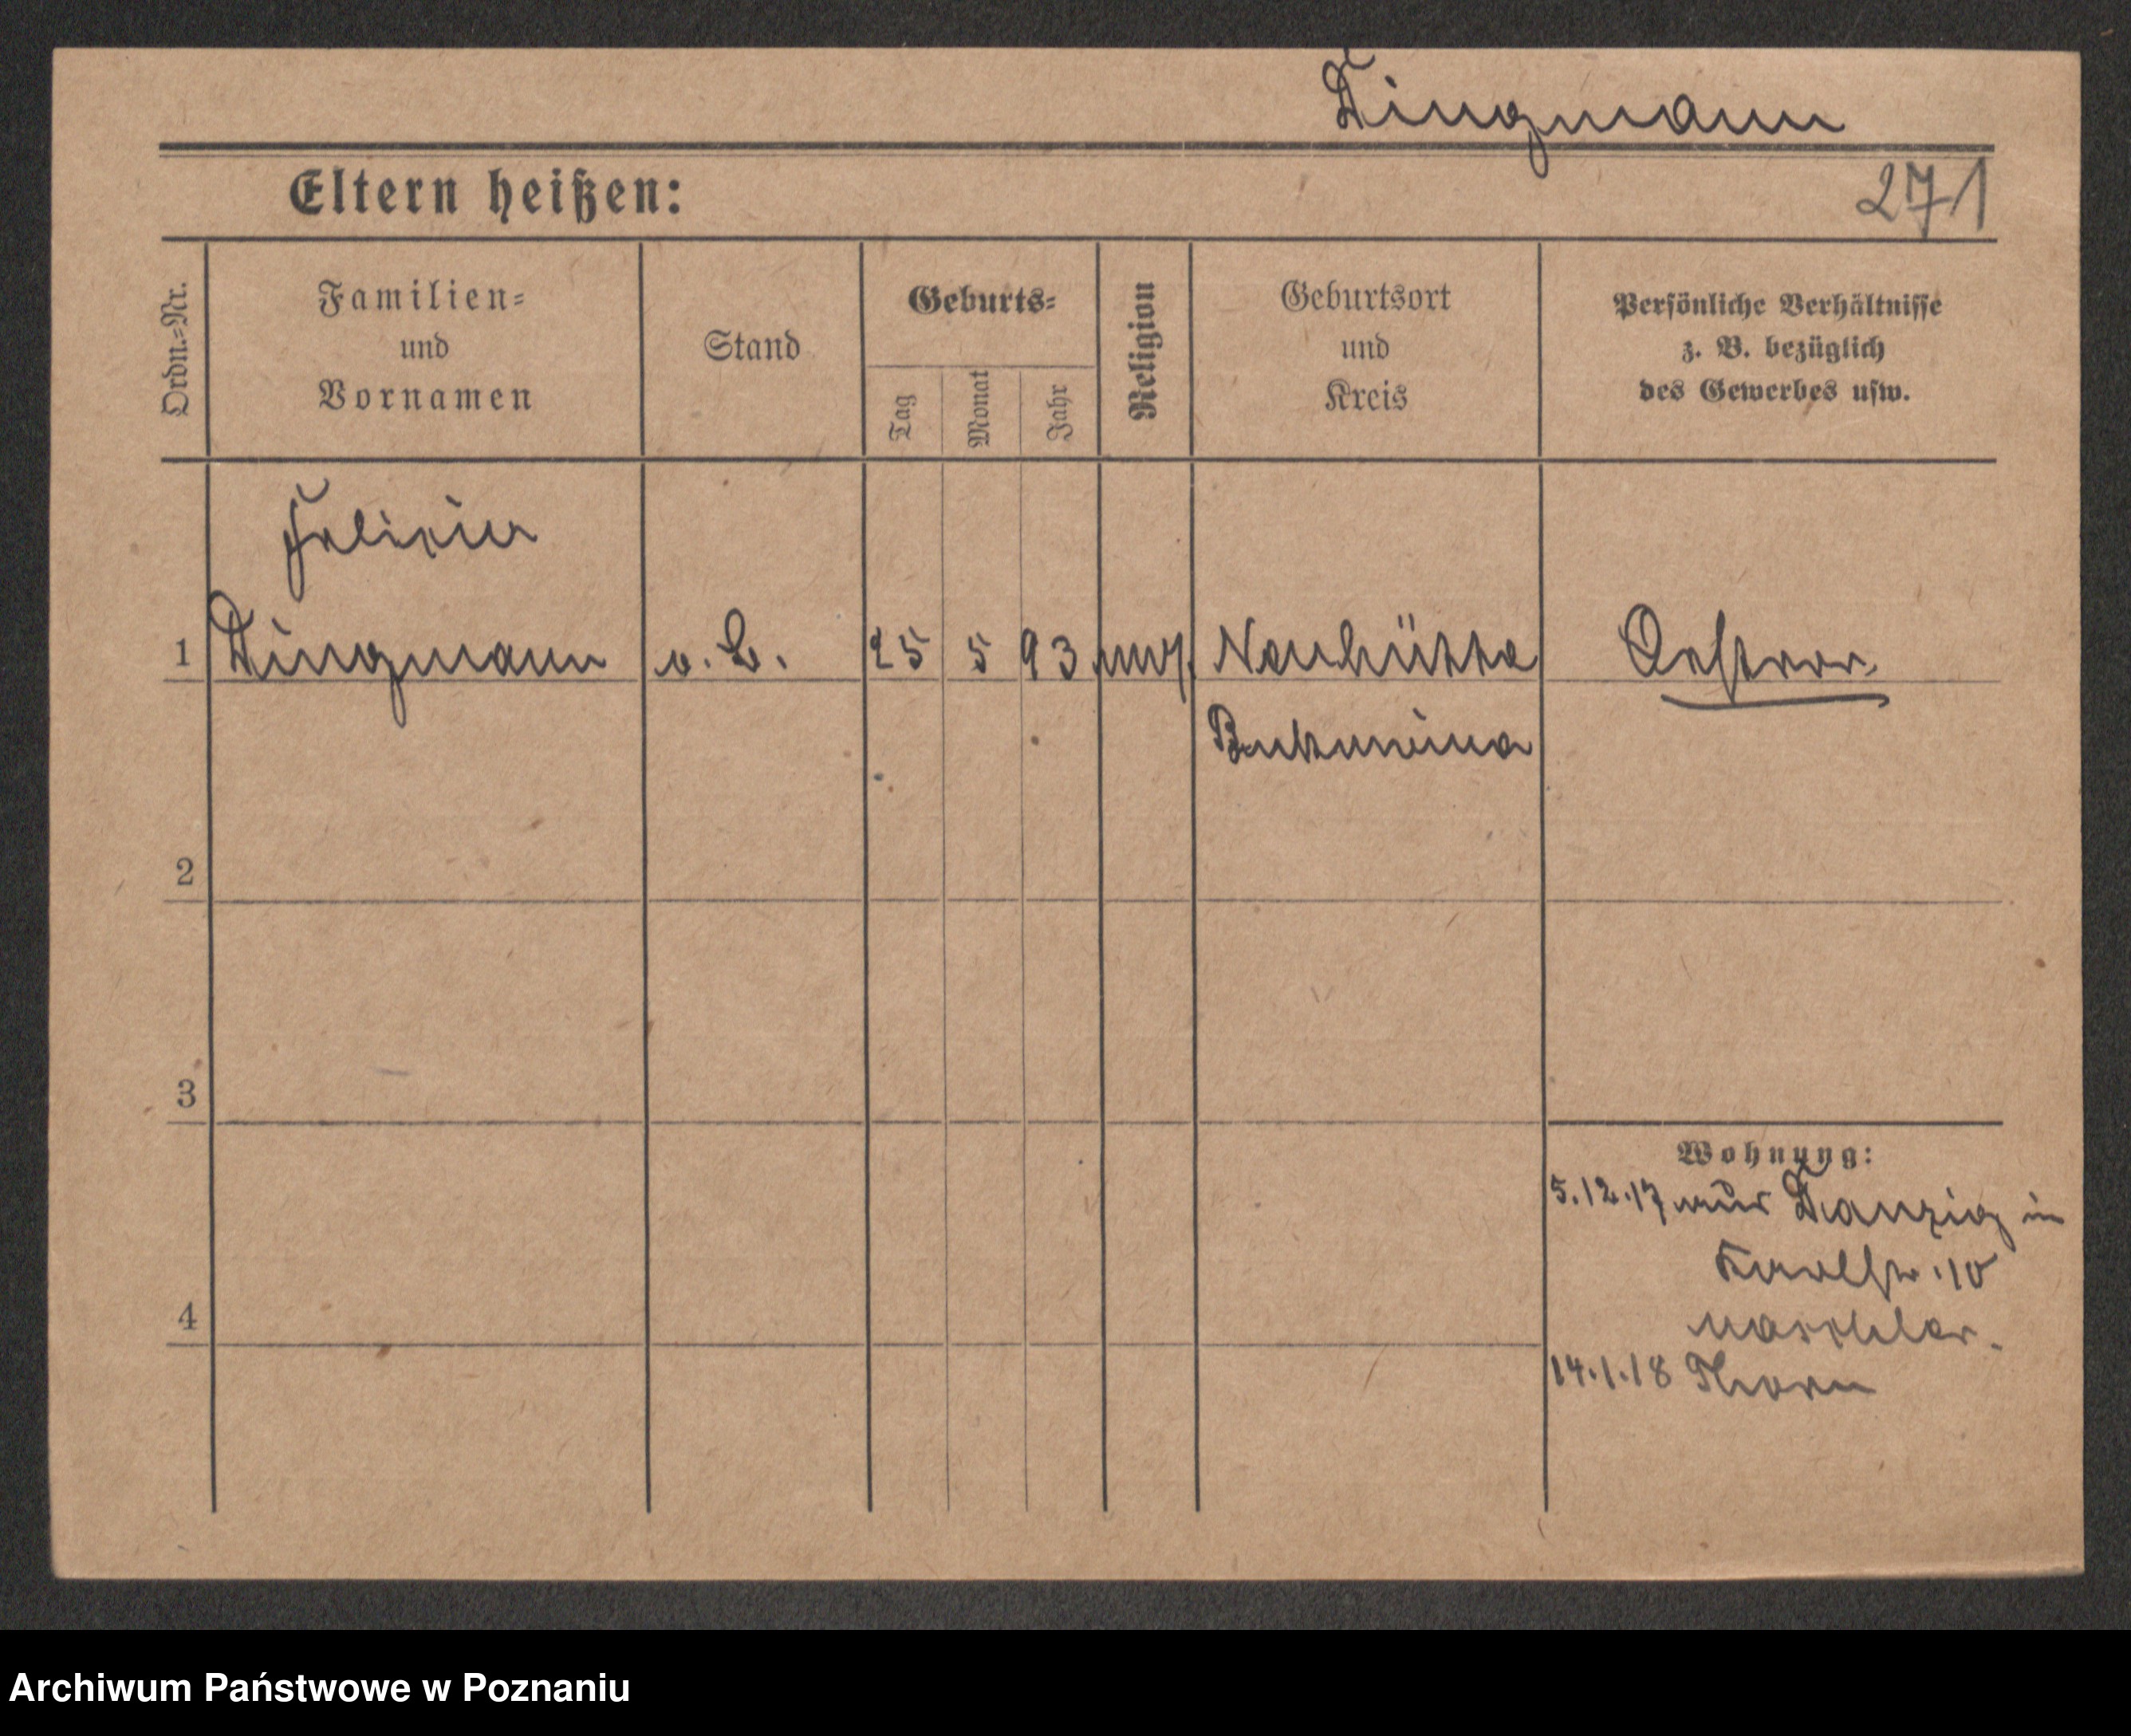 Dingmann
Eltern heißen:
271
Ordn.=Nr.
Familien=
und
Vornamen
Stand
Geburts=
Tag
Monat
Jahr
Religion
Geburtsort
und
Kreis
Persönliche Verhältnisse
z. B. bezüglich
des Gewerbes usw.
Felizia
1 Dingmann o. B. 25 5 93 Neuhütte
Bukowina
2
3
4
Wohnung:
5.12.17 aus Danzig in
10
14.1.18 Thorn
Archiwum Państwowe w Poznaniu